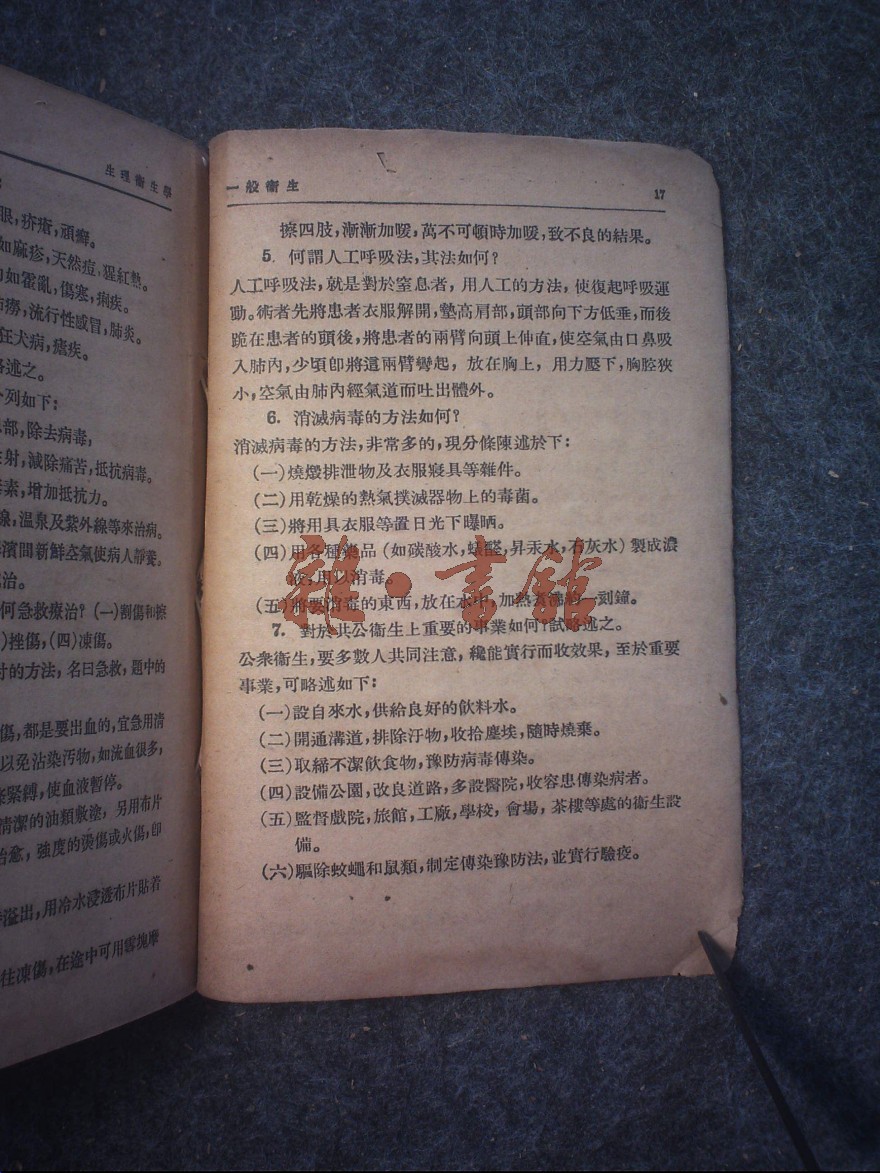 生理衞生學
眼，疥瘡，頑癬。
如麻疹，天然痘，猩紅熱。
如霍亂，傷寒，痢疾。
肺癆，流行性感冒，肺炎。
狂犬病，瘧疾。
略述之。
列如下：
部，除去病毒，
射，減除痛苦，抵抗病毒。
毒素，增加抵抗力。
線，温泉及紫外線等來治病。
濱間新鮮空氣使病人靜養。
治。
何急救療治？（一）割傷和擦
）挫傷，（四）凍傷。
的方法，名曰急救，題中的
傷，都是要出血的，宜急用清
以免沾染汚物，如流血很多，
緊縛，使血液暫停。
清潔的油類敷塗，另用布片
治愈，強度的燙傷或火傷，卽
溢出，用冷水浸透布片貼着
往凍傷，在途中可用雪塊摩
一般衞生 17
擦四肢，漸漸加暖，萬不可頓時加暖，致不良的結果。
5. 何謂人工呼吸法，其法如何？
人工呼吸法，就是對於窒息者，用人工的方法，使復起呼吸運
動。術者先將患者衣服解開，墊高肩部，頭部向下方低垂，而後
跪在患者的頭後，將患者的兩臂向頭上伸直，使空氣由口鼻吸
入肺內，少頃卽將這兩臂彎起，放在胸上，用力壓下，胸腔狹
小，空氣由肺內經氣道而吐出體外。
6. 消滅病毒的方法如何？
消滅病毒的方法，非常多的，現分條陳述於下：
（一）燒燬排泄物及衣服寢具等雜件。
（二）用乾燥的熱氣撲滅器物上的毒菌。
（三）將用具衣服等置日光下曝晒。
（四）用各種藥品（如碳酸水，蟻醛，昇汞水，石灰水）製成濃
液，用以消毒。
（五）將要消毒的東西，放在水中，加熱煮沸約一刻鐘。
雜·書館
7. 對於共公衞生上重要的事業如何？試略述之。
公衆衞生，要多數人共同注意，纔能實行而收效果，至於重要
事業，可略述如下：
（一）設自來水，供給良好的飲料水。
（二）開通溝道，排除汙物，收拾塵埃，隨時燒棄。
（三）取締不潔飲食物，豫防病毒傳染。
（四）設備公園，改良道路，多設醫院，收容患傳染病者。
（五）監督戲院，旅館，工廠，學校，會場，茶樓等處的衞生設
備。
（六）驅除蚊蠅和鼠類，制定傳染豫防法，並實行驗疫。